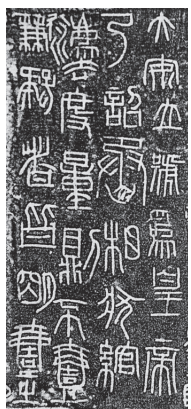 大安立號爲皇帝
乃詔丞相狀綰
灋度量則不壹
歉疑者皆明壹之